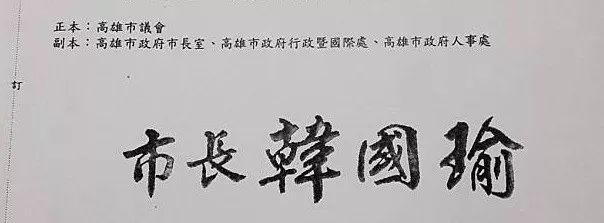 正本：高雄市議會
副本：高雄市政府市長室、高雄市政府行政暨國際處、高雄市政府人事處
訂
市長韓國瑜